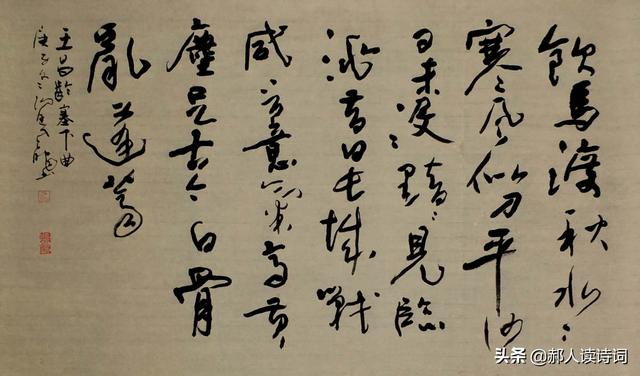 飲馬渡秋水〻
寒風似刀平沙
日未沒黯〻見臨
洮昔日長城戰
咸言意氣高黃
塵足古今白骨
亂蓬蒿
王昌齡塞下曲
庚子冬
头条 @郝人读诗词